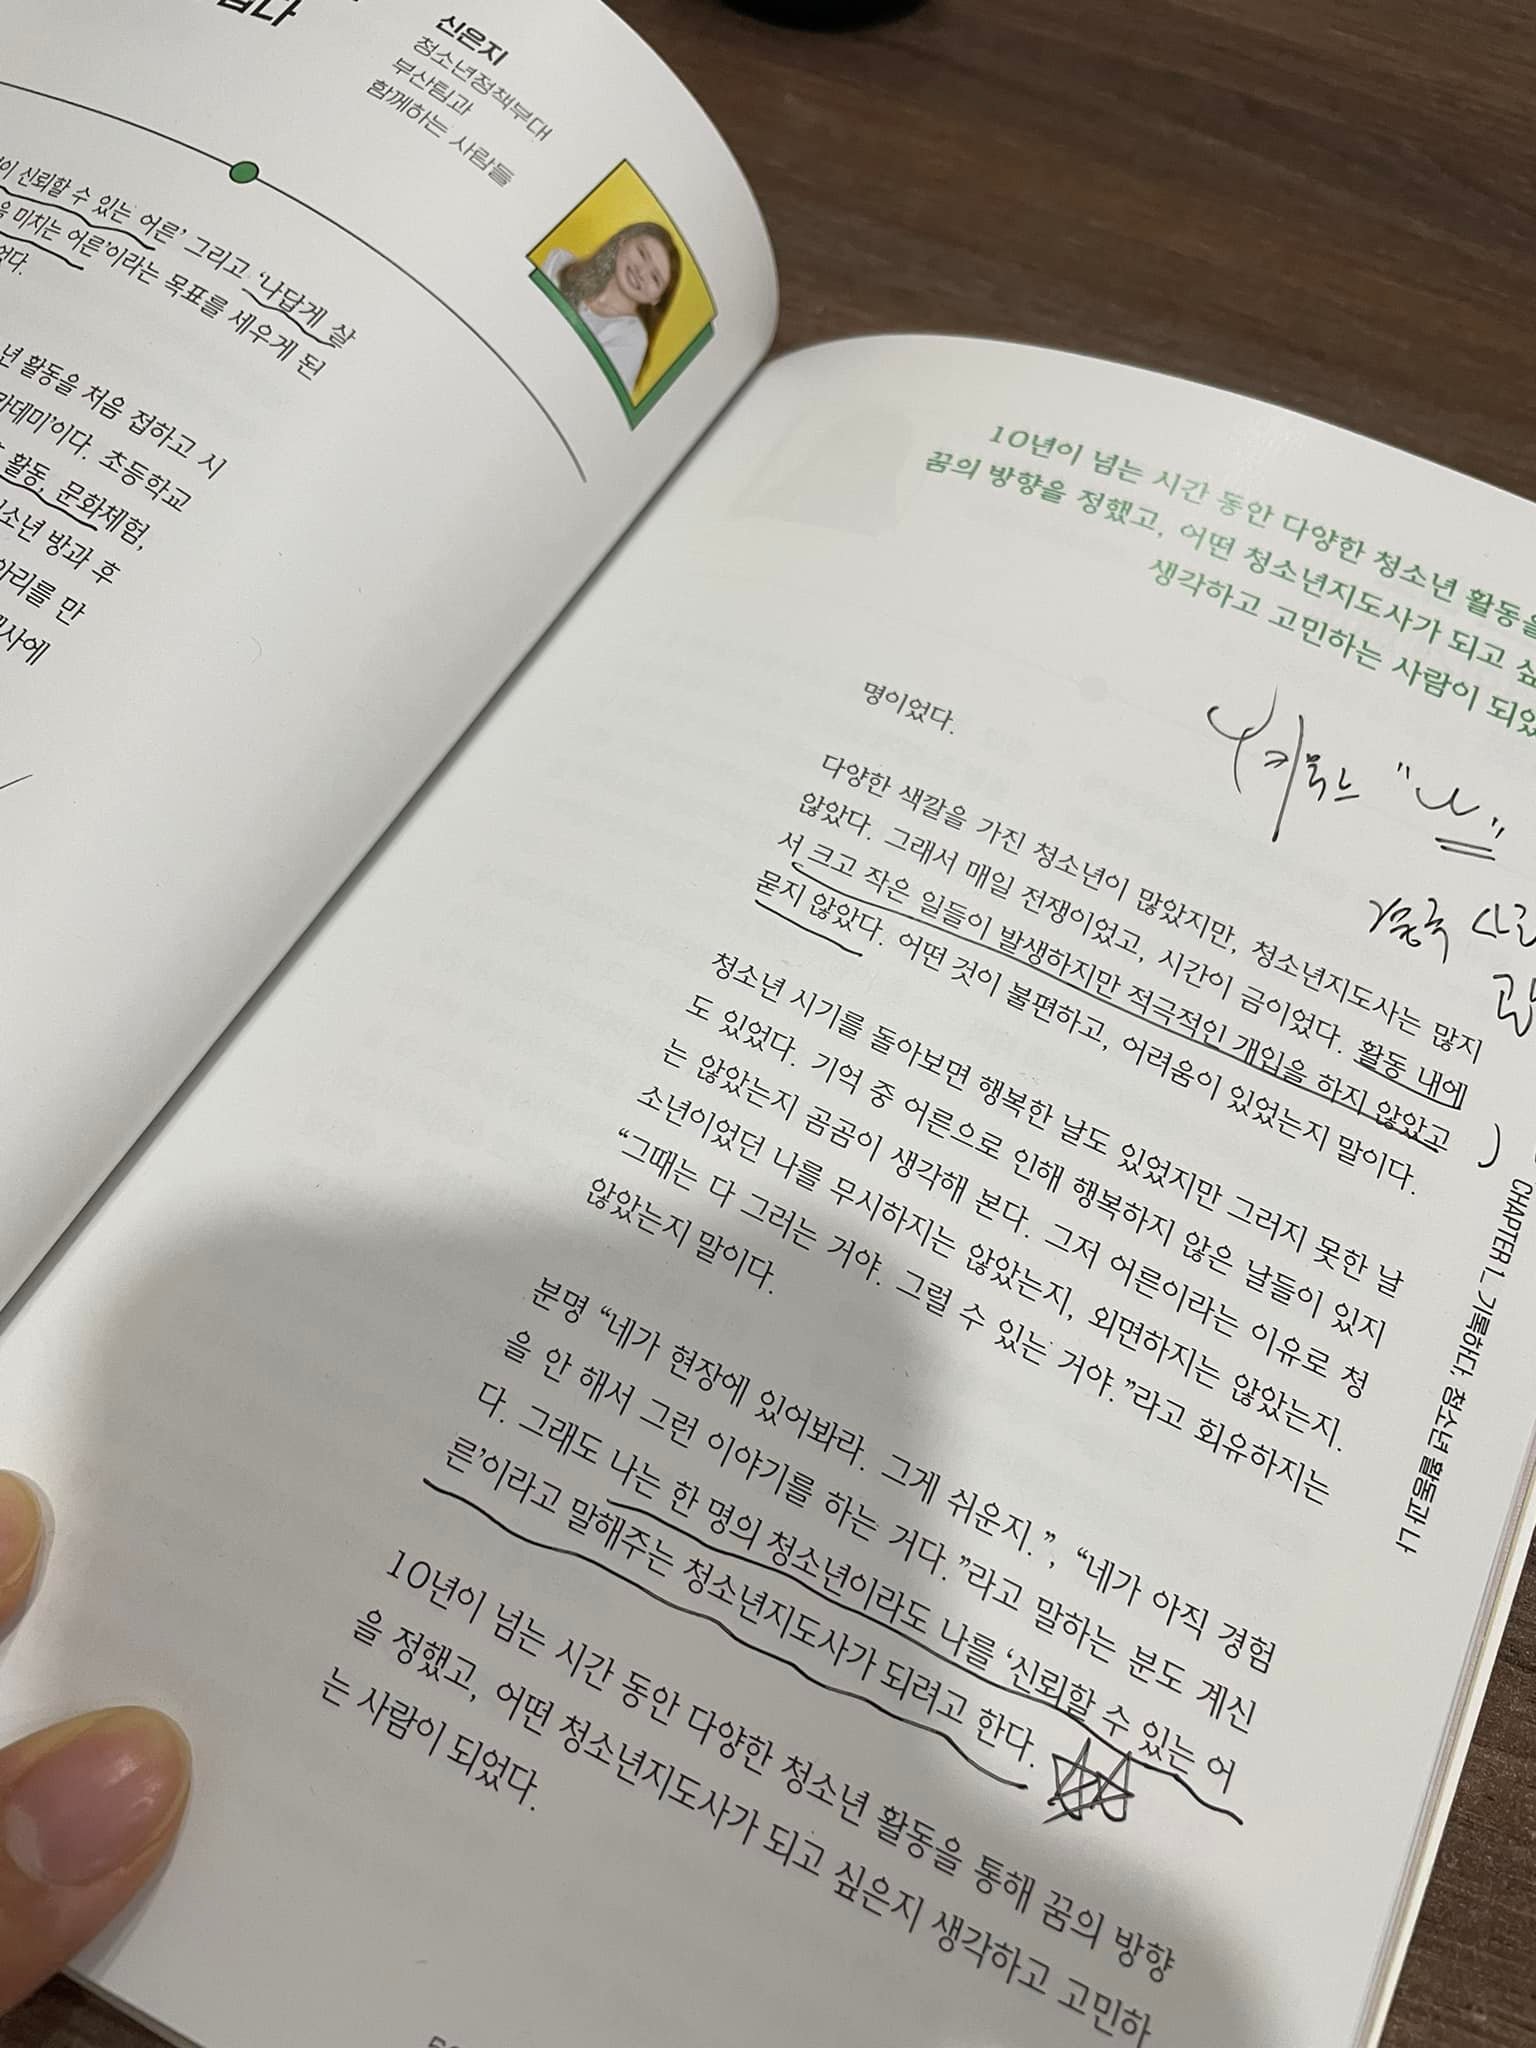 립다
신은지
청소년정책부대
부산팀과
함께하는 사람들
신뢰할 수 있는 어른’ 그리고 ‘나답게 살
미치는 어른’이라는 목표를 세우게 된
년 활동을 처음 접하고 시
카데미’이다. 초등학교
활동, 문화체험,
소년 방과 후
아리를 만
사에
10년이 넘는 시간 동안 다양한 청소년 활동을
꿈의 방향을 정했고, 어떤 청소년지도사가 되고 싶
생각하고 고민하는 사람이 되었
명이었다.
다양한 색깔을 가진 청소년이 많았지만, 청소년지도사는 많지
않았다. 그래서 매일 전쟁이었고, 시간이 금이었다. 활동 내에
서 크고 작은 일들이 발생하지만 적극적인 개입을 하지 않았고
묻지 않았다. 어떤 것이 불편하고, 어려움이 있었는지 말이다.
청소년 시기를 돌아보면 행복한 날도 있었지만 그러지 못한 날
도 있었다. 기억 중 어른으로 인해 행복하지 않은 날들이 있지
는 않았는지 곰곰이 생각해 본다. 그저 어른이라는 이유로 청
소년이었던 나를 무시하지는 않았는지, 외면하지는 않았는지.
“그때는 다 그러는 거야. 그럴 수 있는 거야.”라고 회유하지는
않았는지 말이다.
분명 “네가 현장에 있어봐라. 그게 쉬운지.”, “네가 아직 경험
을 안 해서 그런 이야기를 하는 거다.”라고 말하는 분도 계신
다. 그래도 나는 한 명의 청소년이라도 나를 ‘신뢰할 수 있는 어
른’이라고 말해주는 청소년지도사가 되려고 한다.
10년이 넘는 시간 동안 다양한 청소년 활동을 통해 꿈의 방향
을 정했고, 어떤 청소년지도사가 되고 싶은지 생각하고 고민하
는 사람이 되었다.
CHAPTER 1. 기록하다: 청소년 활동과 나